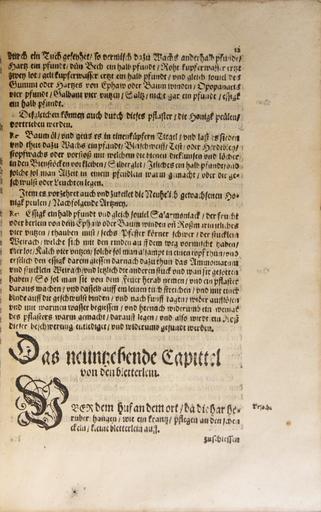 12
durch ein Tuch geseyhet / so vermisch dazu Wachs anderhalb pfundt /
Hartz ein pfundt / dün Bech ein halb pfundt / Rohe kupferwasser ertzt
zwey lot / gelt kupferwasser ertzt ein halb pfundt / und gleich souiel des
Gummi oder Hartzes von Ephaw oder Baum winden / Opopanacis
vier pfundt / Galbani vier untzen / Saltz / nicht gar ein pfundt / essigk
ein halb pfundt.
Desgleichen können auch durch dieses pflaster / die Honigk peülen /
vortrieben werden.
Baum öl / und geus es in einen küpfern Tigel / und laß es sieden
und theil dazu Wachs ein pfundt / Bleichweiß /
stopfwachs oder vorstoß mit welchem die bienen die kumsen und löcher
in den Bienstöcken vorkleiben / Silberglet / jtliches ein halb pfundt / und
solche sol man Alzeit in einem pfendlein warm gemacht / oder die ge-
schwulst oder feuchten legen.
Item es vorzehret auch und zuteilet die Neuhelich gewachsenen Ho-
nigk peulen / Nachfolgende Artzney.
Essigk ein halb pfundt und gleich souiel Sal armoniack / der frucht
oder berlein von dem Ephaw oder Baum winden
vier untzen / thauben mist / sechs Pfeffer körner schwer / der stücklein
Weirach / welche sich mit den rinden auff dem weg vormischt haben /
vier lot / Kalch vier untzen / solche sol man alsampt in einen topf thun / und
erstlich den essigk darein giessen darnach dazu thun das Ammoniacum
und stücklein Weirach / und letzlich die anderen stuck und wan sie gesotten
haben / So sol man sie von dem feuer herab nemen / und ein pflaster
daraus machen / und dasselb auff ein leinen tuch streichen / und mit einer
binde auff die geschwulst binden / und nach fünff tagen / wider aufflösen
und mit warmem wasser begiessen / und hiernach widerumb ein wenigk
des pflasters warm gemacht / darauff legen / und also wirdt ein
dieser beschwerung entlediget / und widerumb gesundt werden.
Das neunzehende Capittel
von den bletterlein.
VBER dem huf an dem ort / da die har he-
rüber hangen / wie ein krantz / pflegen an den schen
ckeln / kleine bletterlein auff
zuschiessen